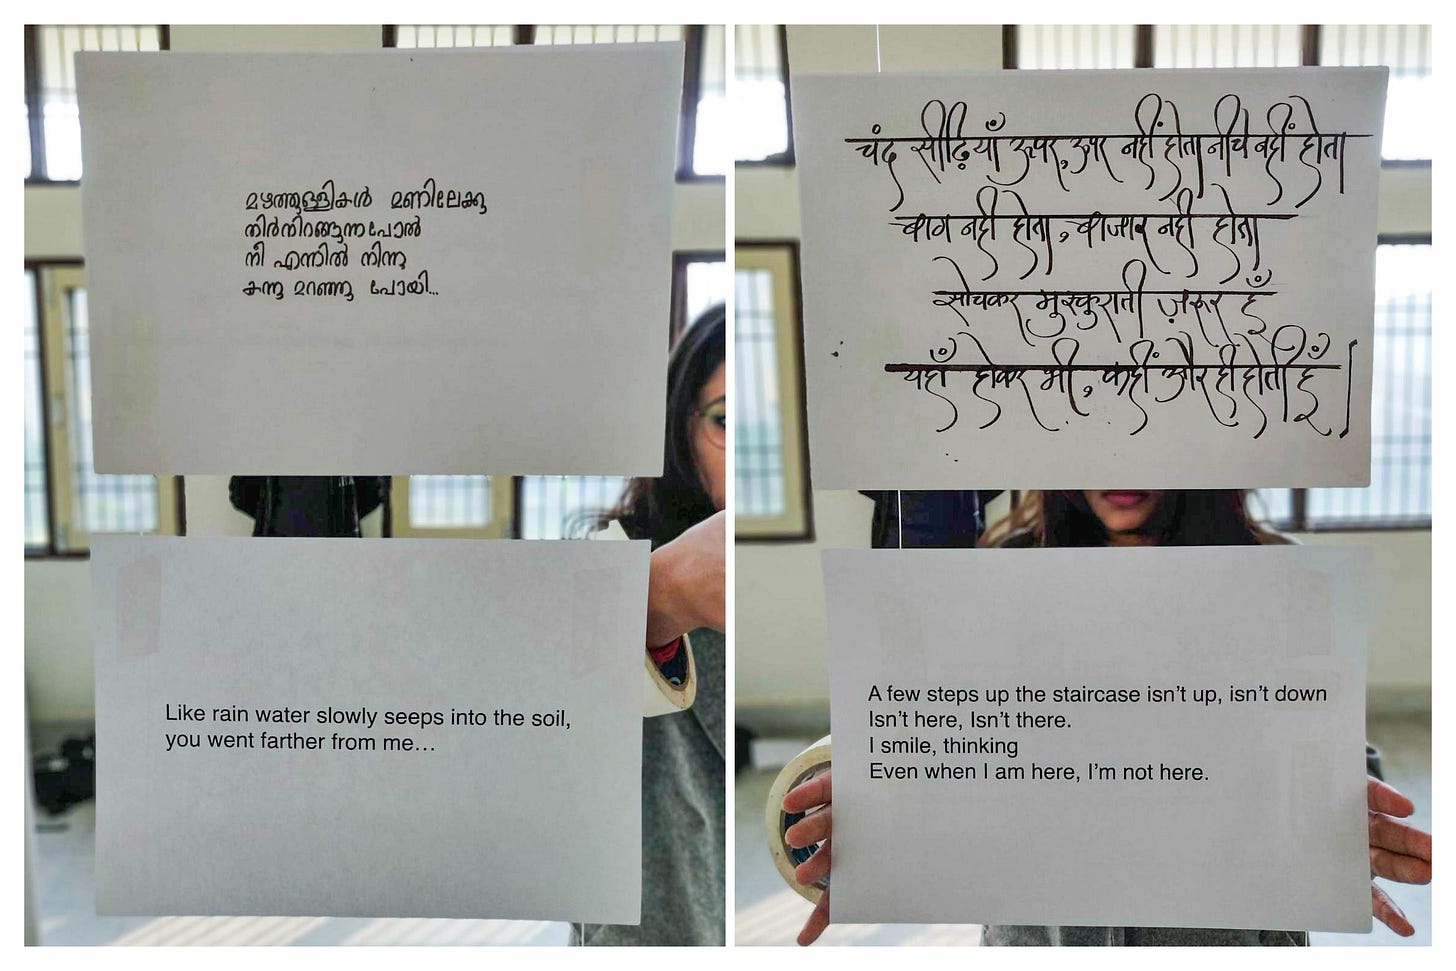 മഴത്തുള്ളികൾ മണിലേക്കു
നിർനിറങ്ങുന്നപോൽ
നീ എന്നിൽ നിന്നു
കന്നു മറഞ്ഞു പോയി...
Like rain water slowly seeps into the soil,
you went farther from me...
चंद सीढ़ियाँ ऊपर, ऊपर नहीं होता नीचे नहीं होता
बाग नहीं होता, बाजार नहीं होता
सोचकर मुस्कुराती ज़रूर हूँ
यहाँ होकर भी, कहीं और ही होती हूँ।
A few steps up the staircase isn't up, isn't down
Isn't here, Isn't there.
I smile, thinking
Even when I am here, I'm not here.